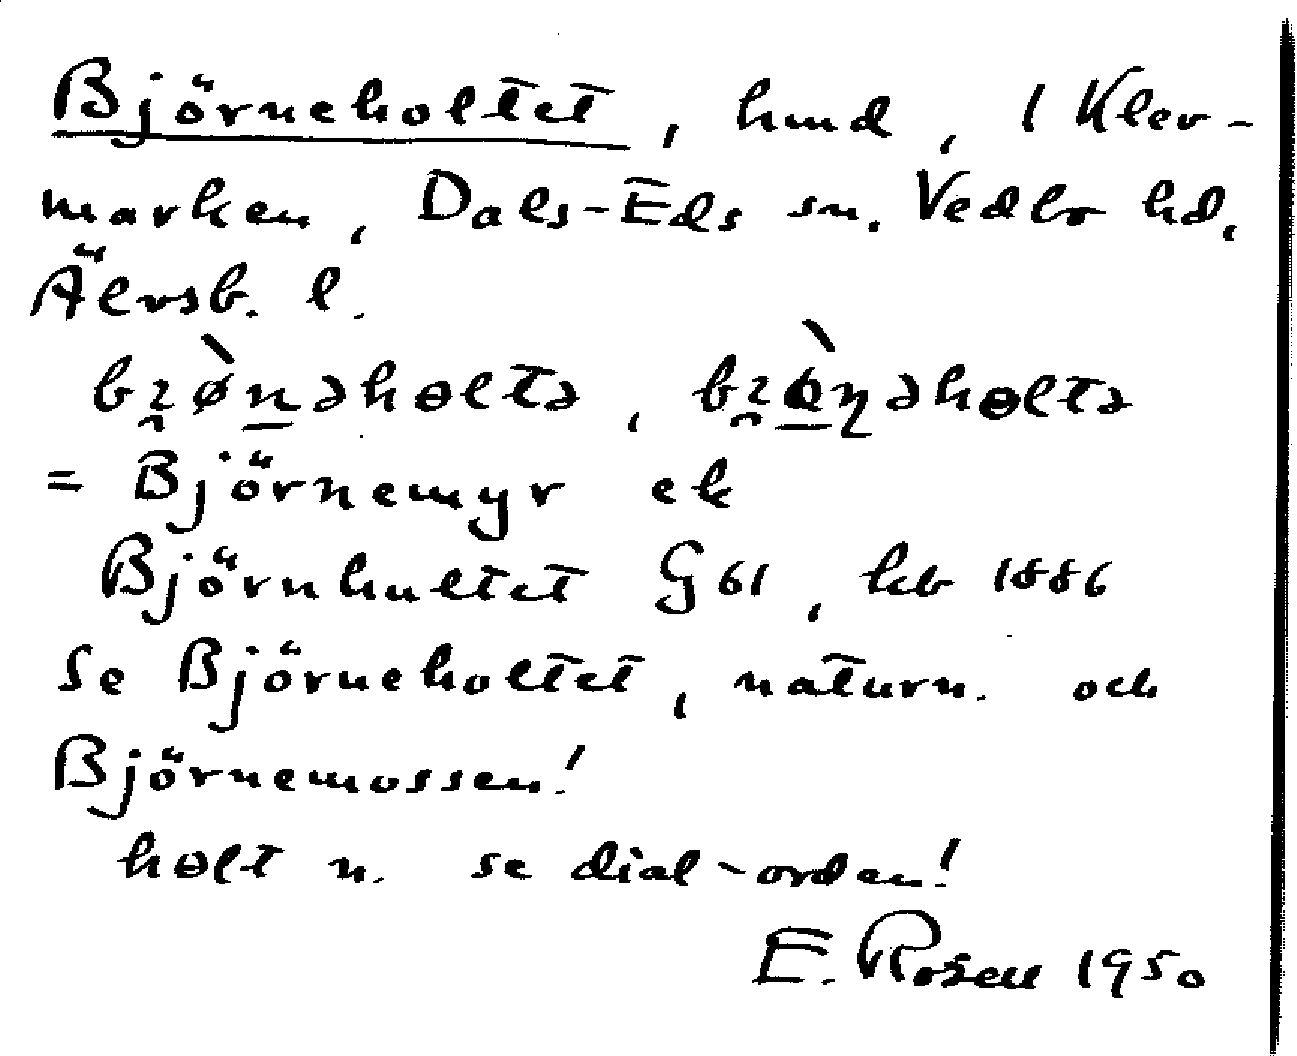 Björneholtet, hmd, 1 Klev-
marken, Dals-Eds sn. Vedbo hd,
Älvsb. l.
bɿø̀nəhɵltə, bɿø̀ɳəhɵltə
= Björnemyr ek
Björnhultet G 61, hb 1886
Se Björneholtet, naturn. och
Björnemossen!
hɵlt n. se dial-orden!
E. Rosén 1950